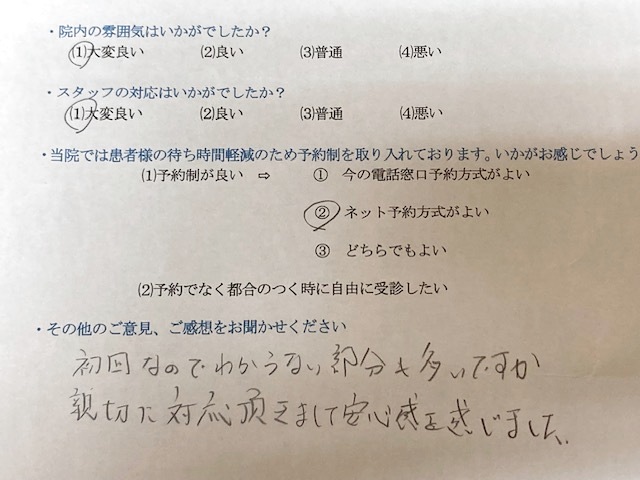 ・院内の雰囲気はいかがでしたか？
⑴大変良い ⑵良い ⑶普通 ⑷悪い
・スタッフの対応はいかがでしたか？
⑴大変良い ⑵良い ⑶普通 ⑷悪い
・当院では患者様の待ち時間軽減のため予約制を取り入れております。いかがお感じでしょう
⑴予約制が良い ⇨ ① 今の電話窓口予約方式がよい
② ネット予約方式がよい
③ どちらでもよい
⑵予約でなく都合のつく時に自由に受診したい
・その他のご意見、ご感想をお聞かせください
初回なのでわからない部分も多いですが
親切に対応頂きまして安心感を感じました。